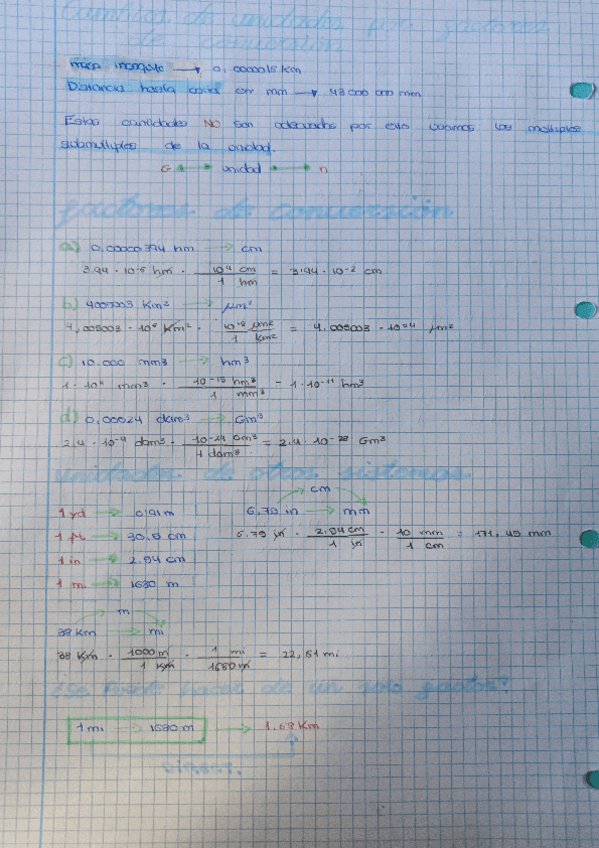 Cambios de unidades por factores
de conversión
0,0000015 km
Distancia hasta casa en mm → 43 000 000 mm
Estas cantidades NO son adecuadas por eso usamos los múltiplos
submúltiplos de la unidad.
G ← unidad → n
factores de conversión
a) 0,00000394 hm → cm
3.94 · 10⁻⁶ hm · 10⁴ cm / 1 hm = 3.94 · 10⁻² cm
b) 4005003 Km² → μm²
μm² / 1 Km² = 4,005003 · 10²⁴ μm²
c) 10.000 mm³ → hm³
1 · 10⁴ mm³ · 10⁻¹⁵ hm³ / 1 mm³ = 1 · 10⁻¹¹ hm³
d) 0,00024 dam³ → Gm³
2.4 · 10⁻⁴ dam³ · 10⁻²⁴ Gm³ / 1 dam³ = 2.4 · 10⁻²⁸ Gm³
unidades de otros sistemas
cm
1 yd → 0,91 m
6.75 in → mm
1 ft → 30,5 cm
6.75 in · 2.54 cm / 1 in · 10 mm / 1 cm = 171,45 mm
1 in → 2.54 cm
1 mi → 1680 m
m
38 Km → mi
38 Km · 1000 m / 1 Km · 1 mi / 1680 m = 22,61 mi
¿Se puede hacer de un solo factor?
1 mi → 1680 m → 1,68 Km